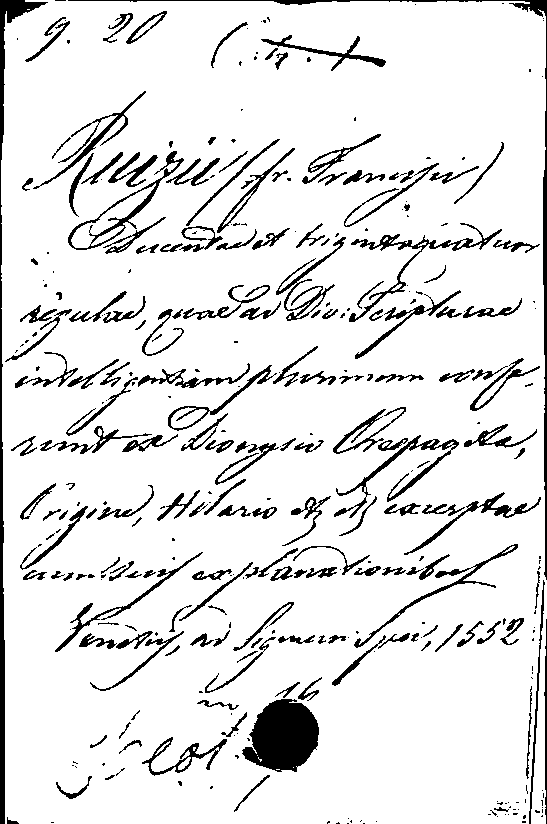 g. 20
Ruizii (fr. Francisci)
Ducentae et triginta quatuor
regulae, quae ad Div: Scripturae
intelligentiam plurimum confe-
runt ex Dionysio Areopagita,
Origine, Hilario &c &c excerptae
cum suis explanationibus
Venetiis, ad Signum Spei, 1552
in 16